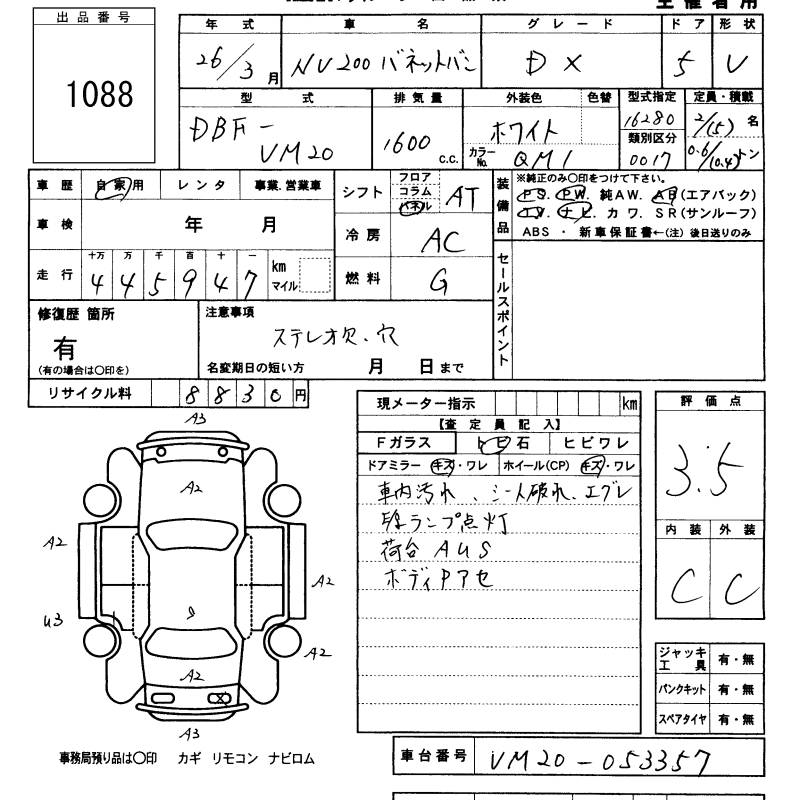 出品番号
1088
年式
車名
グレード
ドア 形状
26/3月
NV200 バネットバン
DX
5
V
型式
排気量
外装色 色替
型式指定
定員・積載
DBF-
VM20
1600
c.c.
ホワイト
カラーNo. QM1
16280
類別区分
0017
2/(5) 名
0.6/(0.4)トン
車歴 自家用 レンタ 事業.営業車
車検 年 月
走行
十万 万 千 百 十 一
4 4 5 9 4 7
km
マイル
シフト
フロア
コラム
パネル
AT
冷房 AC
燃料 G
装備品
※純正のみ〇印をつけて下さい。
PS. PW. 純AW. AB(エアバック)
TV. ナビ. カワ. SR(サンルーフ)
ABS ・ 新車保証書←(注) 後日送りのみ
セールスポイント
修復歴 箇所
有
(有の場合は〇印を)
注意事項
ステレオ欠、穴
名変期日の短い方 月 日まで
リサイクル料 8830円
現メーター指示 km
【査定員記入】
Fガラス トビ石 ヒビワレ
ドアミラー キズ・ワレ ホイール(CP) キズ・ワレ
車内汚れ、シート破れ、エグレ
ランプ点灯
荷台 AUS
ボディPアセ
評価点
3.5
内装 外装
C C
A3
A2
A2
A2
U3
A2
A2
A3
ジャッキ工具 有・無
パンクキット 有・無
スペアタイヤ 有・無
事務局預り品は〇印 カギ リモコン ナビロム
車台番号 VM20-053357